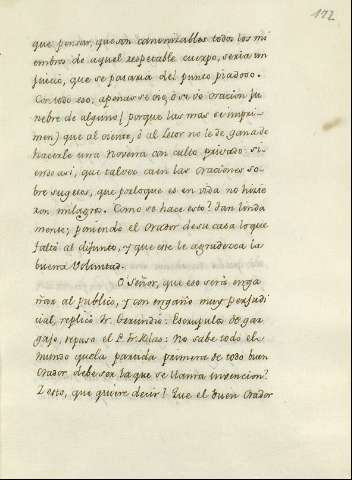 172
que pensar, que son canonizables todos los mi
embros de aquel respetable cuerpo, seria un
juicio, que se pasaria del punto piadoso.
Con todo eso, apenas se oie, ô se vé oracion fu
nebre de alguno (porque las mas se impri-
men) que al oiente, ô al Letor no le dé gana de
hacerle una Novena con culto privado: si-
endo asi, que talvez caen las Oraciones so-
bre sugetos, que por lo que es en vida no hicie
ron milagros. Como se hace esto? Tan linda
mente; poniendo el Orador de su casa lo que
faltó al difunto, y que este le agradezca la
buena Voluntad.
O Señor, que eso será enga
ñar al publico, y con engaño muy perjudi-
cial, replicó Fr. Gerundio. Escrupulos de gar
gajo, repuso el P. Fr. Blas: No sabe todo el
mundo que la partida primera de todo buen
Orador debe ser la que se llama invencion?
Y esto, que quiere decir? Que el buen Orador